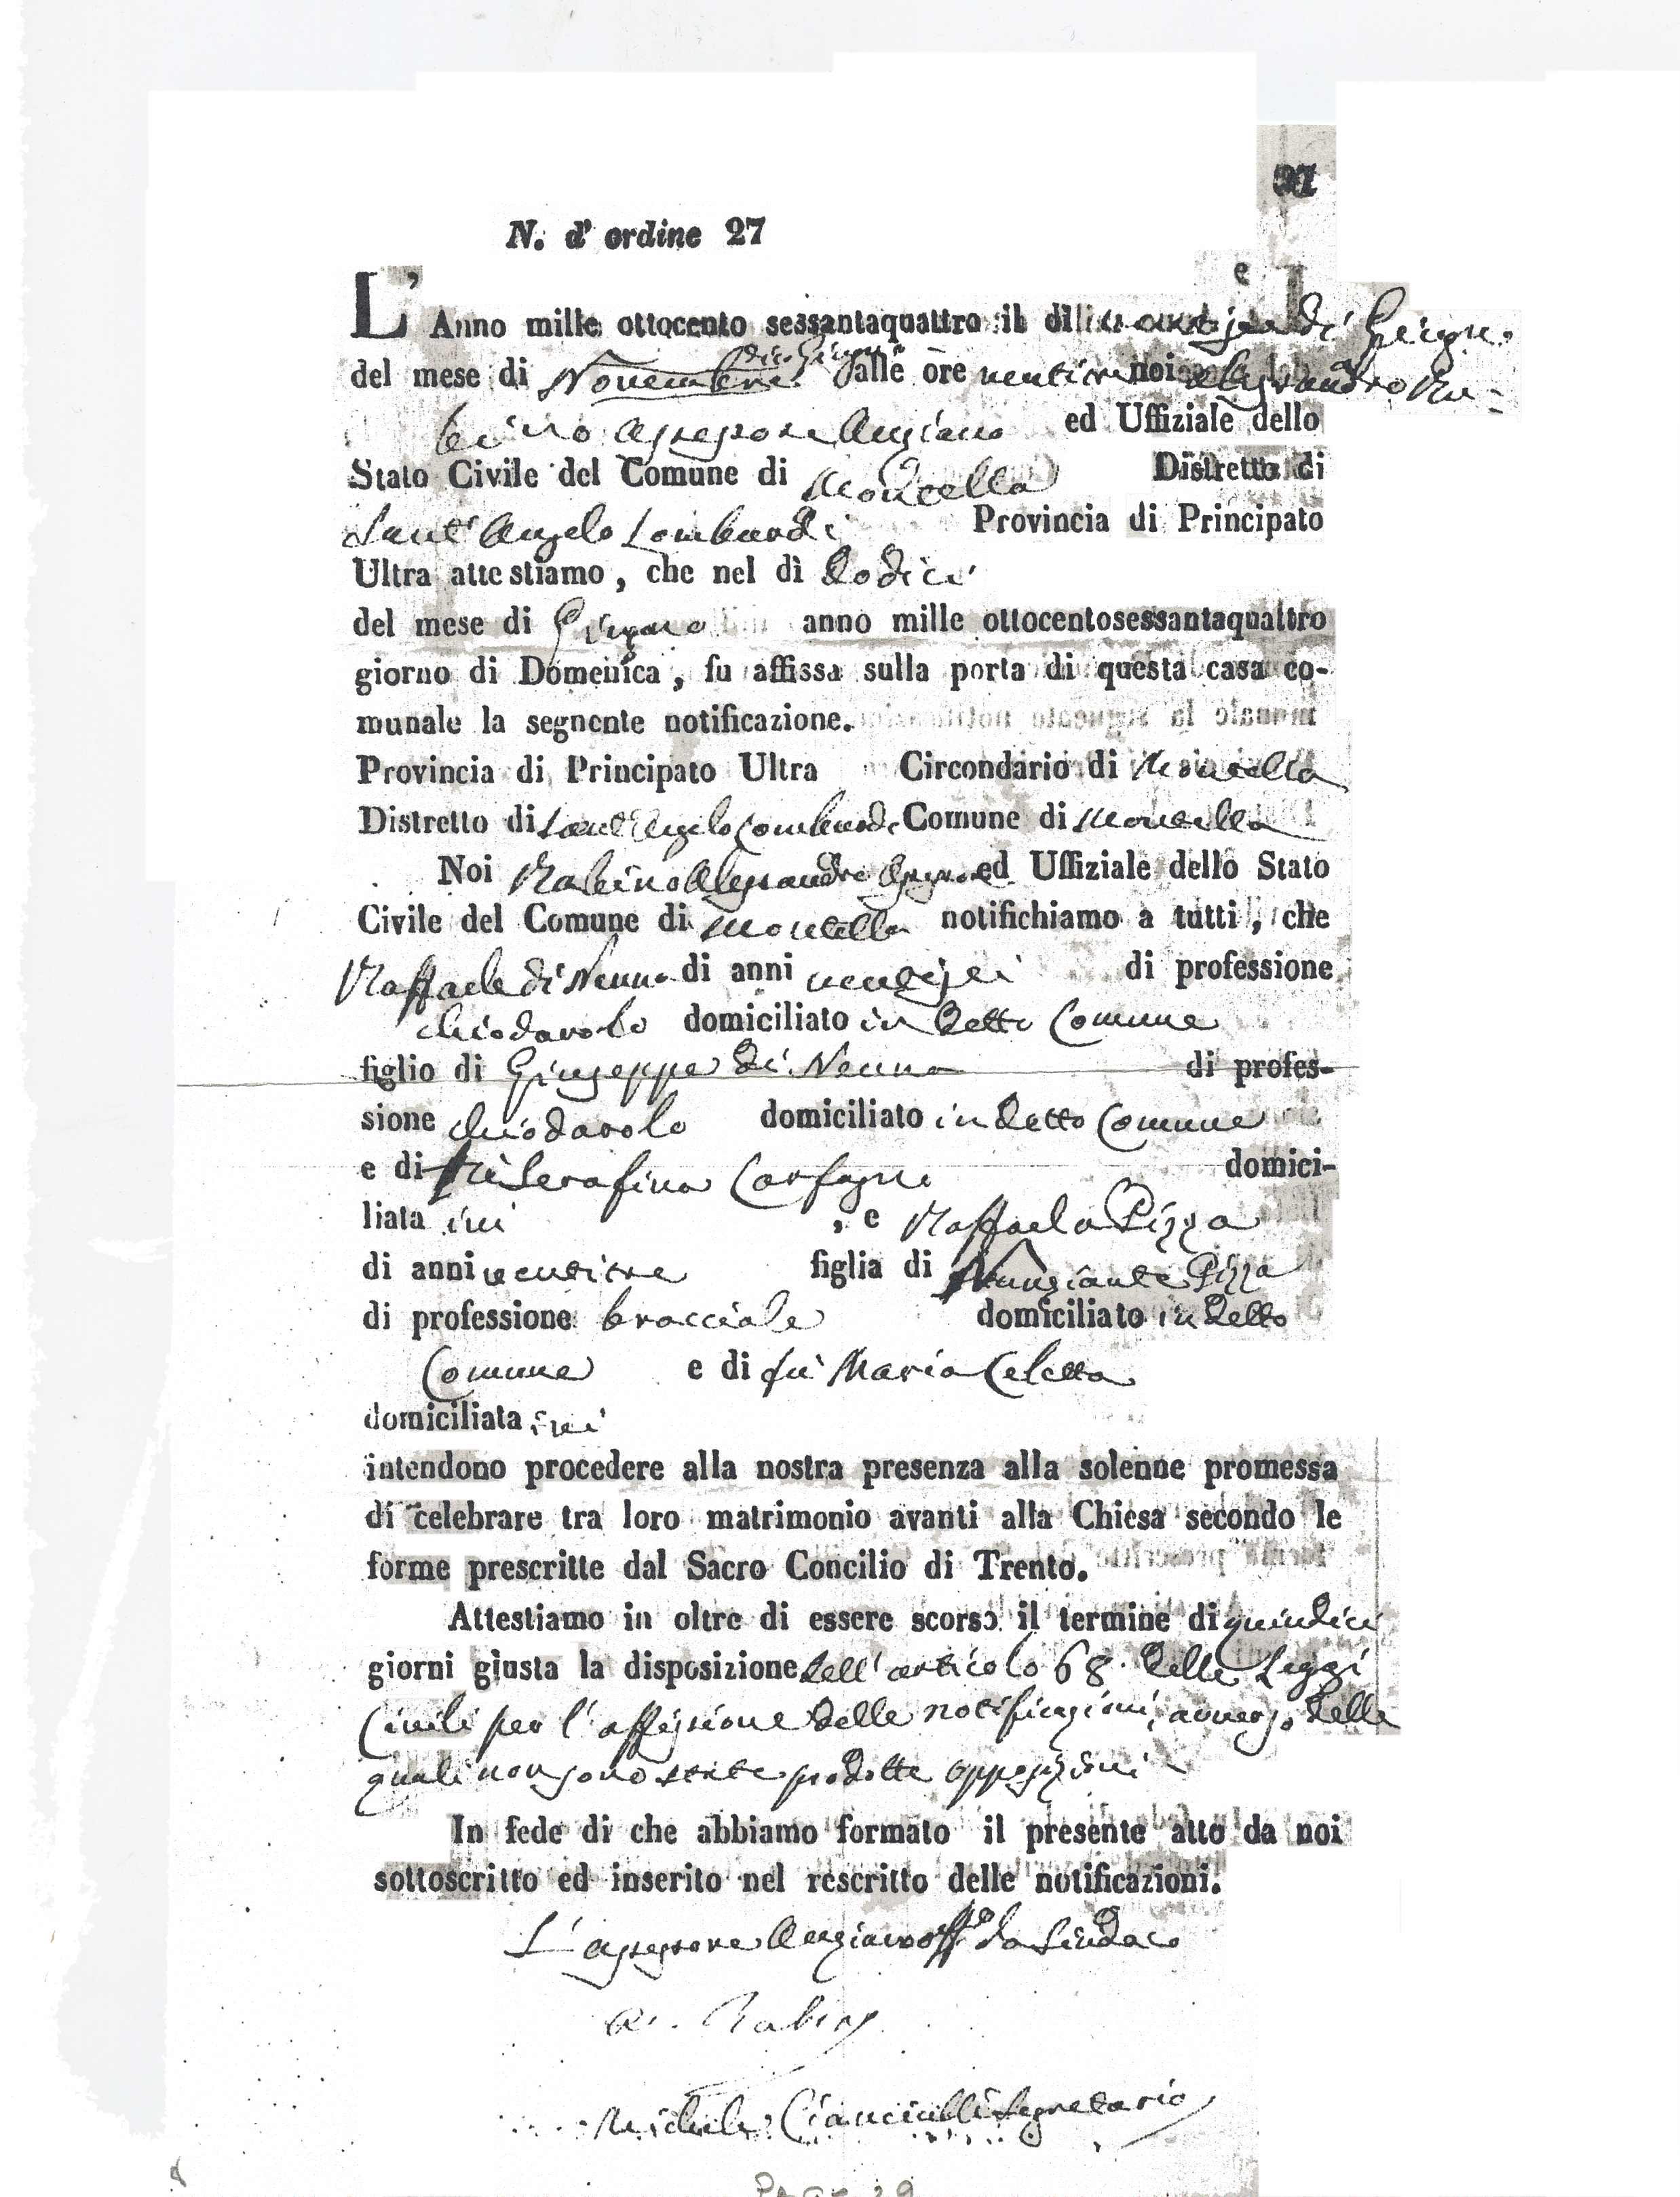 N. d' ordine 27
L' Anno mille ottocento sessantaquattro il di di Giugno
del mese di Novembre dalle ore ventitre noi Alessandro Ru-
bino Assessore Anziano ed Uffiziale dello
Stato Civile del Comune di Montella Distretto di
Sant' Angelo Lombardi Provincia di Principato
Ultra attestiamo, che nel dì dodici
del mese di Giugno anno mille ottocentosessantaquattro
giorno di Domenica, fu affissa sulla porta di questa casa co-
munale la segnente notificazione.
Provincia di Principato Ultra Circondario di Montella
Distretto di Sant'Angelo Lombardi Comune di Montella
Noi Rubino Alessandro Assessore ed Uffiziale dello Stato
Civile del Comune di Montella notifichiamo a tutti, che
Raffaele di Nenna di anni ventisei di professione
chiodarolo domiciliato in detto Comune
figlio di Giuseppe di Nenna di profes-
sione chiodarolo domiciliato in detto Comune
e di Serafina Carfagni domici-
liata ivi, e Raffaela Pizza
di anni ventitre figlia di Nunziante Pizza
di professione bracciale domiciliato in detto
Comune e di fu Maria Celetta
domiciliata ivi
intendono procedere alla nostra presenza alla solenne promessa
di celebrare tra loro matrimonio avanti alla Chiesa secondo le
forme prescritte dal Sacro Concilio di Trento.
Attestiamo in oltre di essere scorso il termine di quindici
giorni giusta la disposizione dell' articolo 68. delle Leggi
Civili per l' affissione delle notificazioni, avverso delle
quali non sono state prodotte opposizioni
In fede di che abbiamo formato il presente atto da noi
sottoscritto ed inserito nel rescritto delle notificazioni.
L' assessore Anziano ff da Sindaco
A. Rubino
Michele Cianciulli Segretario
PAGE 29